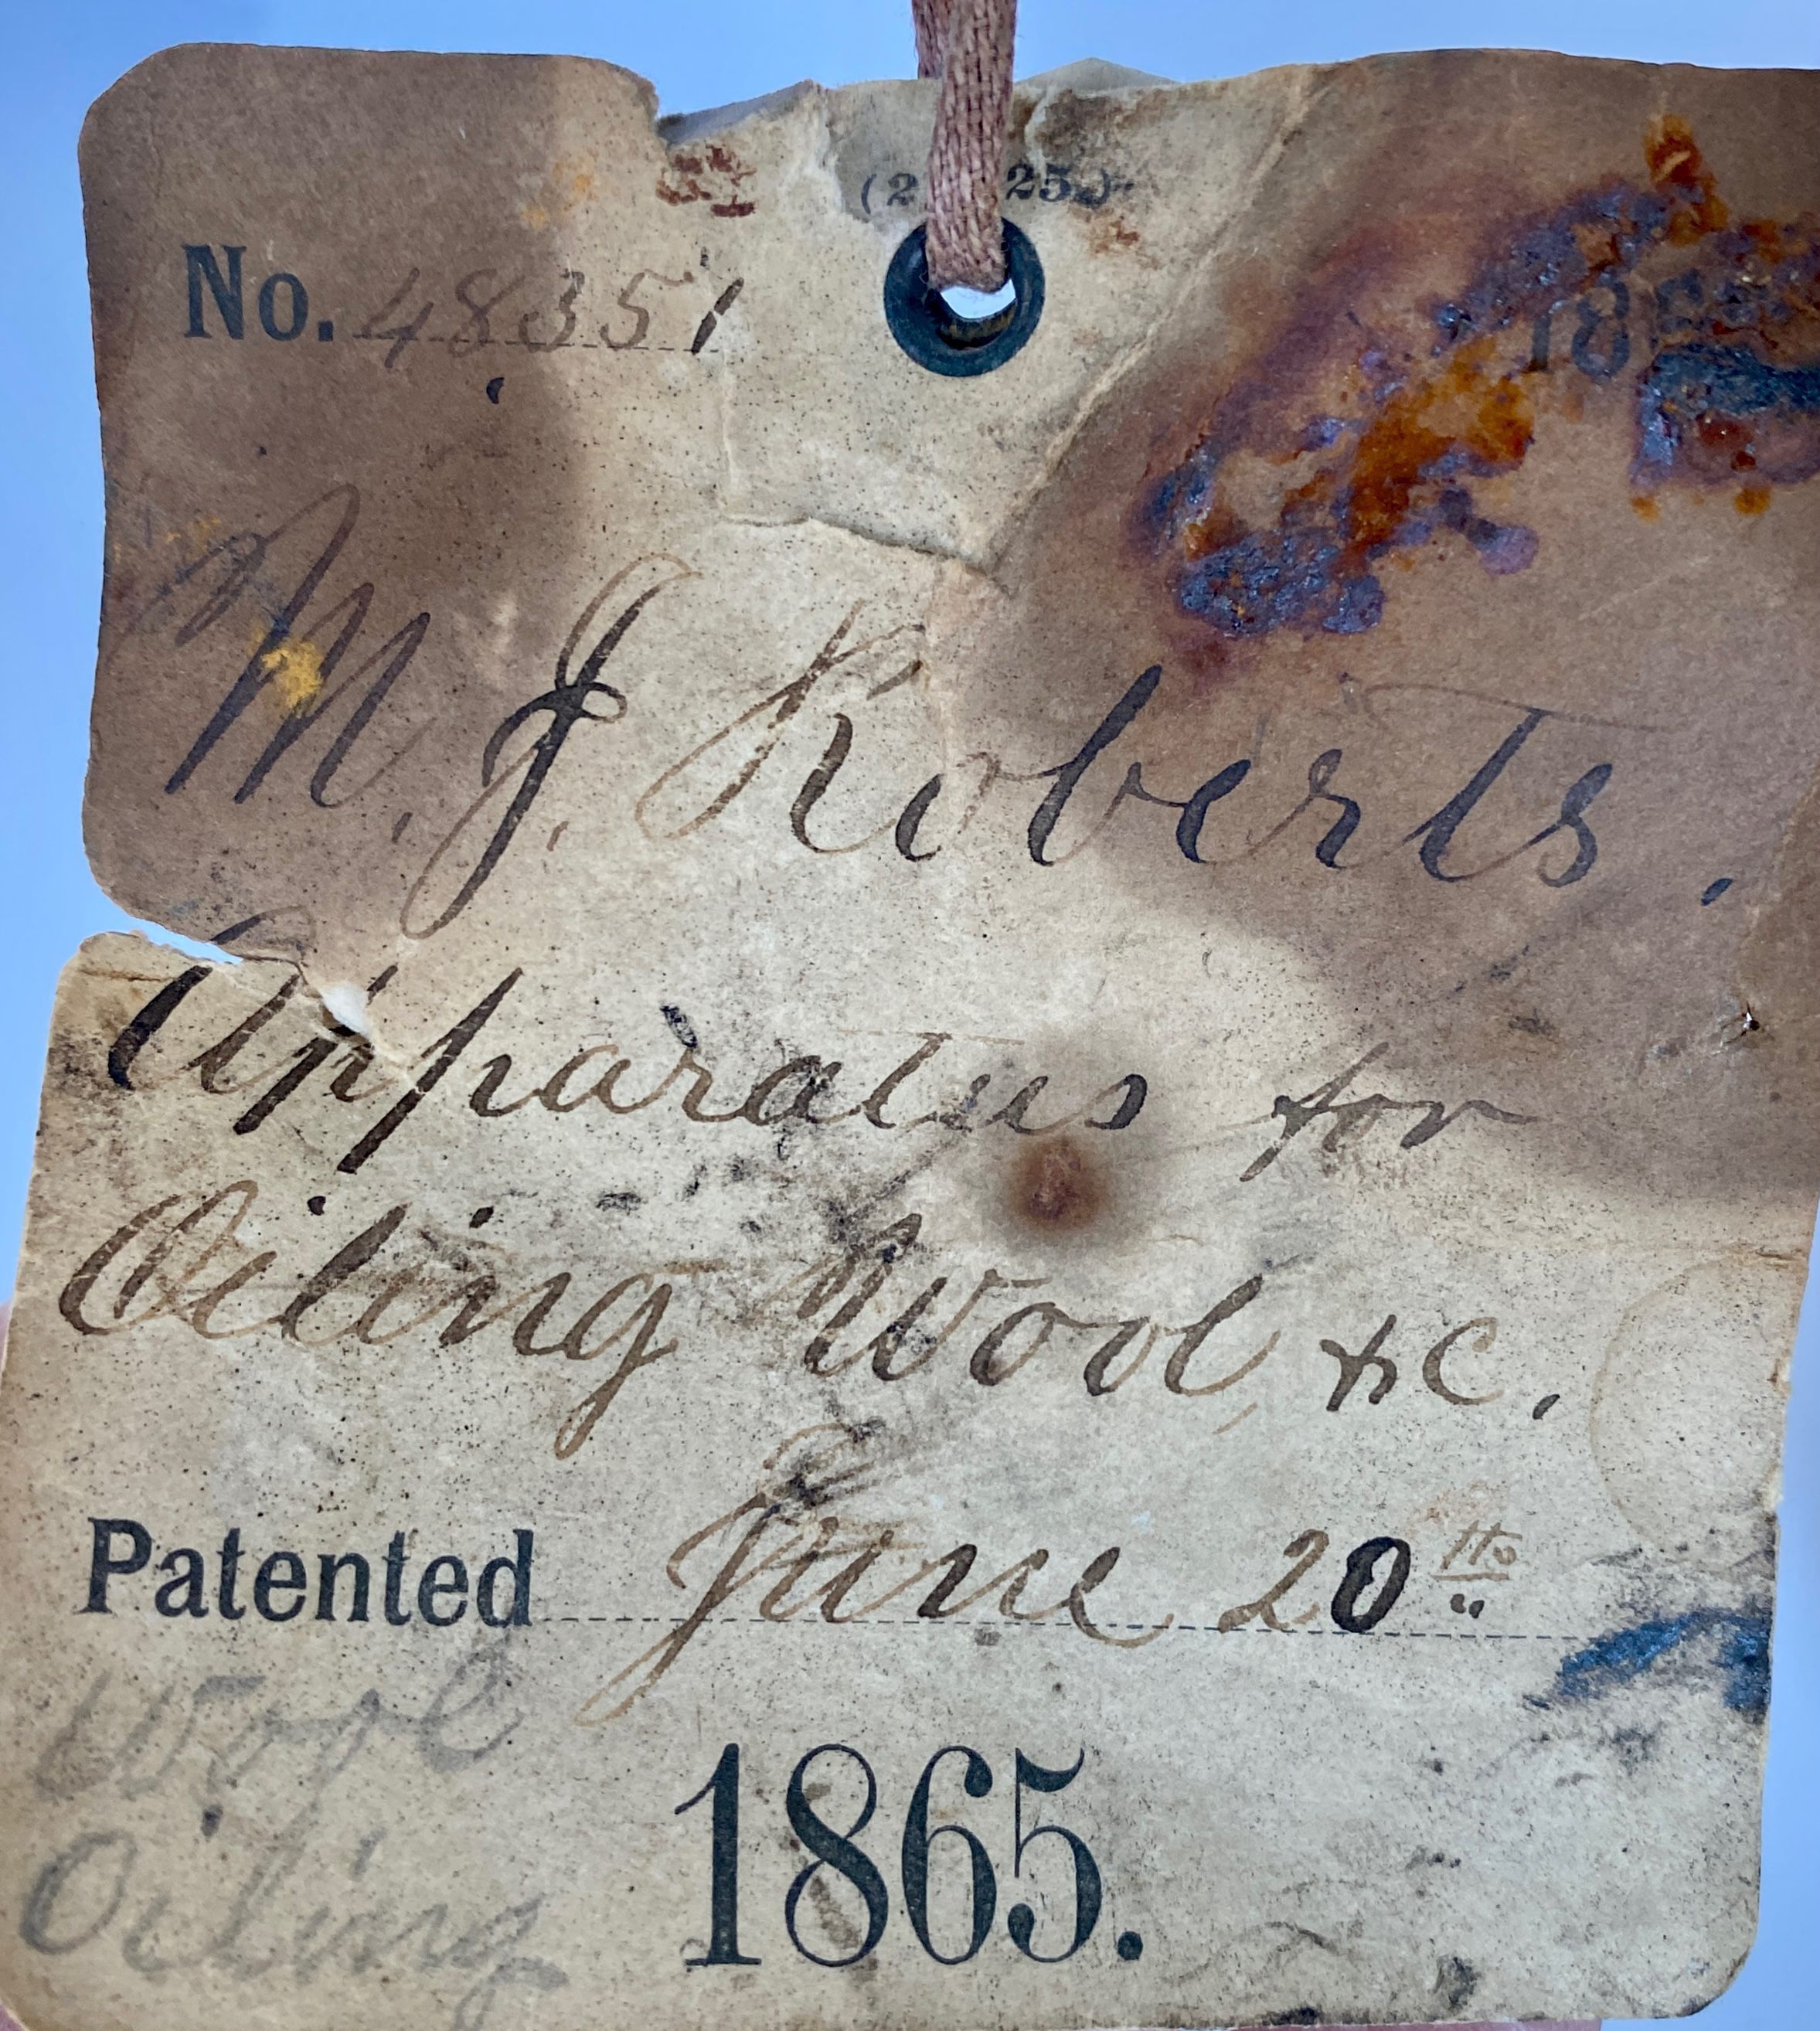 (2 25)
No. 48351
M. J. Roberts.
Apparatus for
Oiling Wool, &c.
Patented June 20th
Wool
1865.
Oiling